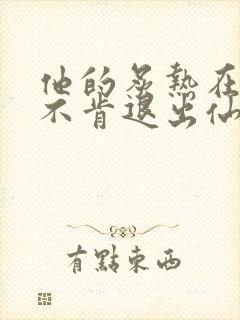 他的炙熱在
不肯退出仙
有點東西